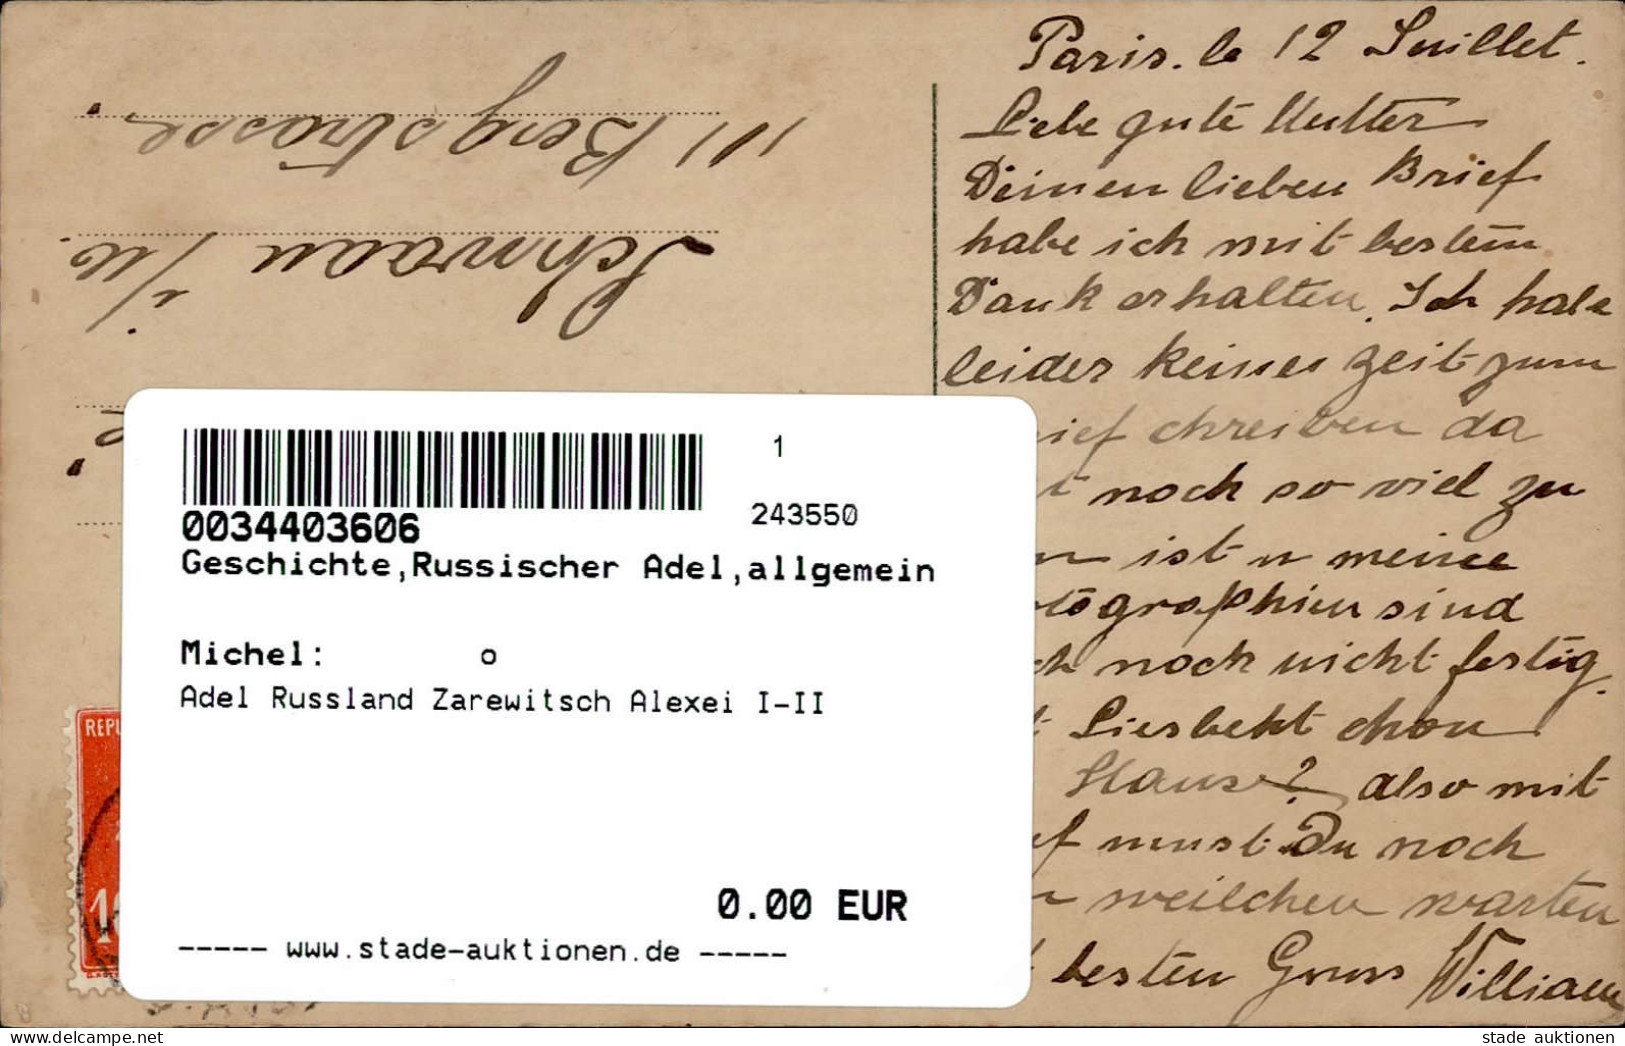 Paris. le 12 Juillet.
Liebe gute Mutter
Deinen lieben Brief
habe ich mit bestem
Dank erhalten. Ich habe
leider keines zeit zum
ief chreiben da
noch so viel zu
n ist u meine
tographien sind
ch noch nicht fertig.
t Liesbeht chon
Hause? also mit
f must Du noch
n weilchen warten
t besten Gruss William
111 Bergstrasse.
Schwaan i/M.
REPU
10
1
243550
0034403606
Geschichte,Russischer Adel,allgemein
Michel: o
Adel Russland Zarewitsch Alexei I-II
0.00 EUR
----- www.stade-auktionen.de -----
stade auktionen